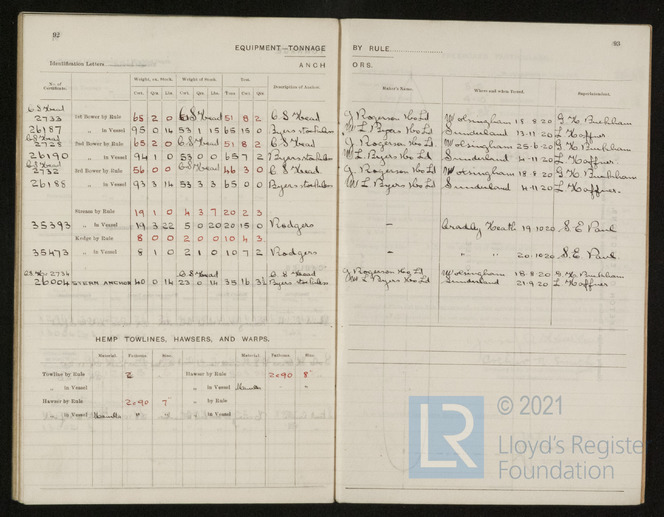 92
EQUIPMENT—TONNAGE
Identification Letters
ANCH
No. of Certificate. Weight, ex. Stock. Weight of Stock. Test. Description of Anchor.
Cwt. Qrs. Lbs. Cwt. Qrs. Lbs. Tons Cwt. Qrs.
C.S. Head
2733 1st Bower by Rule 65 2 0 C.S. Head 51 8 2 C.S. Head
26187 „ in Vessel 95 0 14 53 1 15 65 15 0 Byers stockless
C.S. Head
2725 2nd Bower by Rule 65 2 0 C.S. Head 51 8 2 C.S. Head
26190 „ in Vessel 94 1 0 53 0 0 65 7 2 Byers stockless
C.S. Head
2732 3rd Bower by Rule 56 0 0 C.S. Head 46 3 0 C.S. Head
26188 „ in Vessel 93 3 14 53 3 3 65 0 0 Byers stockless
Stream by Rule 19 1 0 4 3 7 20 2 3
35393 „ in Vessel 19 3 22 5 0 20 20 15 0 Rodgers
Kedge by Rule 8 0 0 2 0 0 10 4 3
35473 „ in Vessel 8 1 0 2 1 0 10 7 2 Rodgers
2734 C.S. Head C.S. Head
26004 STERN ANCHOR 40 0 14 23 0 14 35 16 3½ Byers stockless
HEMP TOWLINES, HAWSERS, AND WARPS.
Material. Fathoms Size. Material. Fathoms Size.
Towline by Rule Hawser by Rule 2090 8"
„ in Vessel „ in Vessel Manilla " "
Hawser by Rule 2090 7" „ by Rule
„ in Vessel Manilla " " „ in Vessel
93
BY RULE
ORS.
Maker's Name. Where and when Tested. Superintendent.
J Rogerson &Co Ld Wolsingham 18.8.20 G.H. Buckham
W L Byers &Co Ld Sunderland 13.11.20 L Haffner
J Rogerson &Co Ld Wolsingham 25.6.20 G.H. Buckham
W.L. Byers &Co Ld Sunderland 4.11.20 L Haffner
J Rogerson &Co Ld Wolsingham 18.8.20 G.H. Buckham
W L Byers &Co Ld Sunderland 4.11.20 L Haffner
— Cradley Heath 19.10.20 S.E. Paul
— „ „ 20.10.20 S.E. Paul
J Rogerson &Co Ld Wolsingham 18.8.20 G.H. Buckham
W L Byers &Co Ld Sunderland 21.9.20 L Haffner
© 2021
LR Lloyd's Register
Foundation